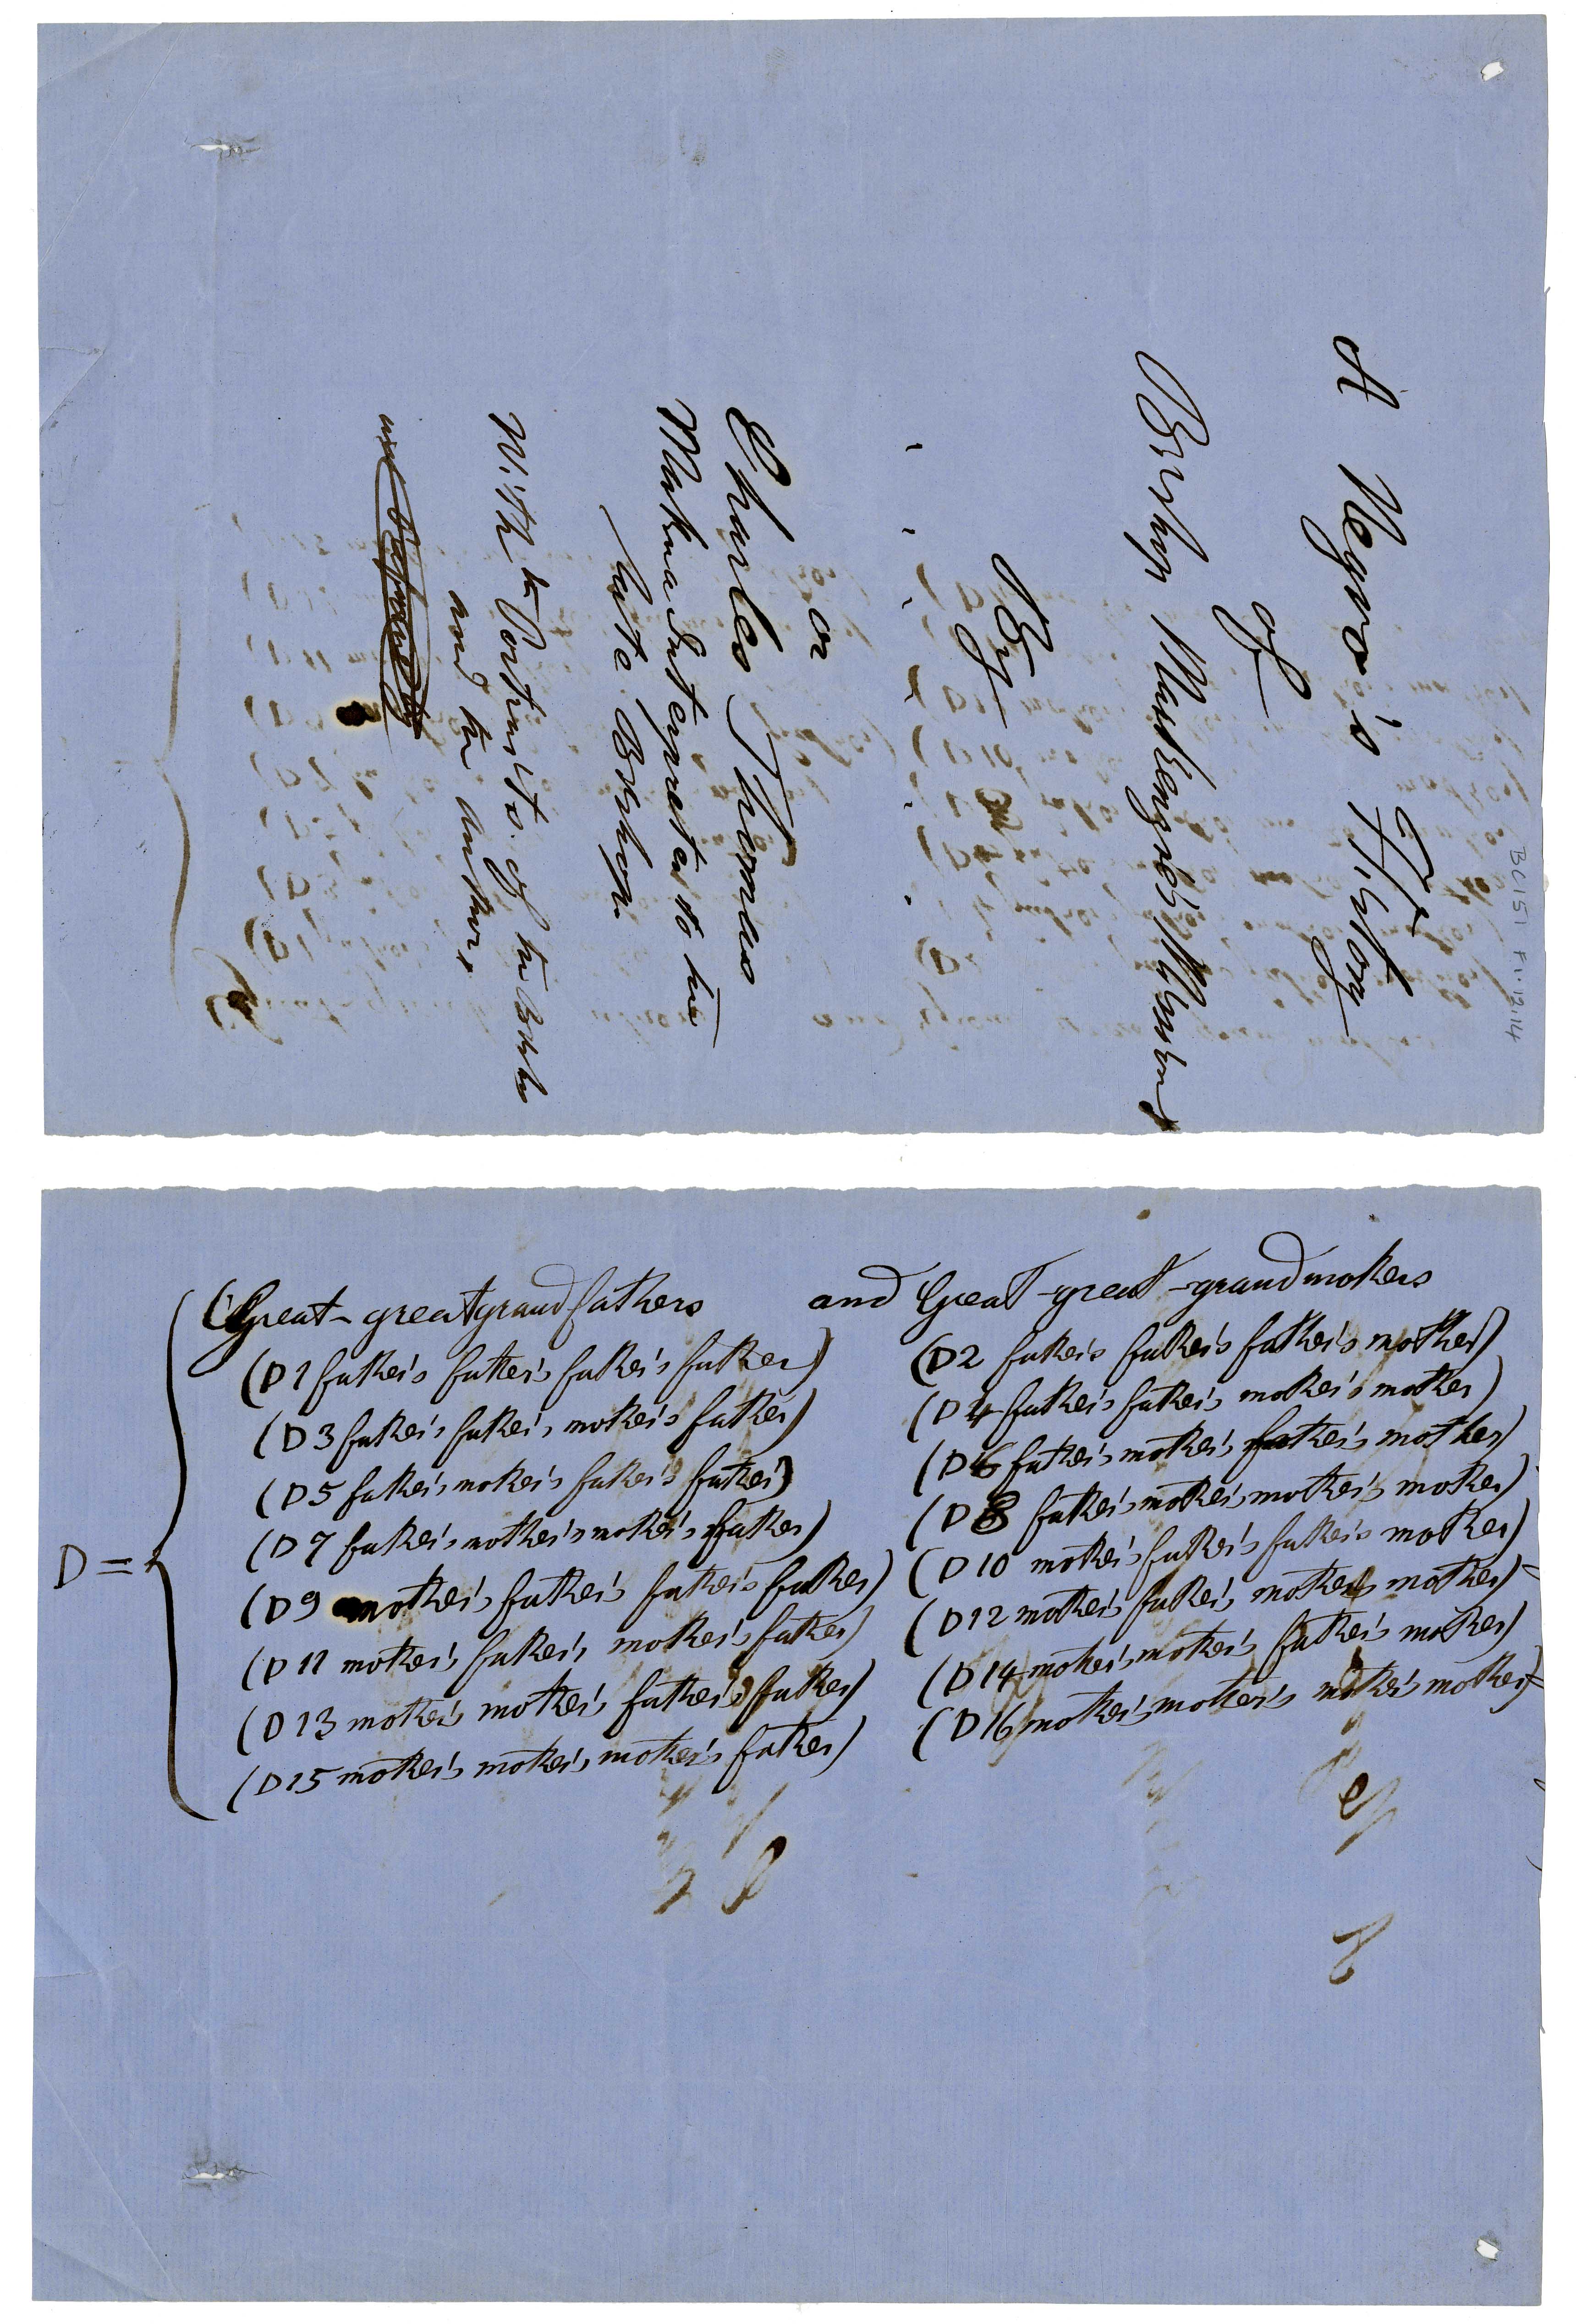 A Negro's History
of
Bishop Mackenzie's Mission
By
or
Charles Thomas
Makua Interpreter to the
late Bishop.
With the Portraits of the Bishop
and the author.
BC151 F1.12.14
(Great-great grand fathers and Great-great-grandmothers
(D1 father's father's father's father) (D2 father's father's father's mother)
(D3 father's father's mother's father) (D4 father's father's mother's mother)
(D5 father's mother's father's father) (D6 father's mother's father's mother)
(D7 father's mother's mother's father) (D8 father's mother's mother's mother)
D = {
(D9 mother's father's father's father) (D10 mother's father's father's mother)
(D11 mother's father's mother's father) (D12 mother's father's mother's mother)
(D13 mother's mother's father's father) (D14 mother's mother's father's mother)
(D15 mother's mother's mother's father) (D16 mother's mother's mother's mother)